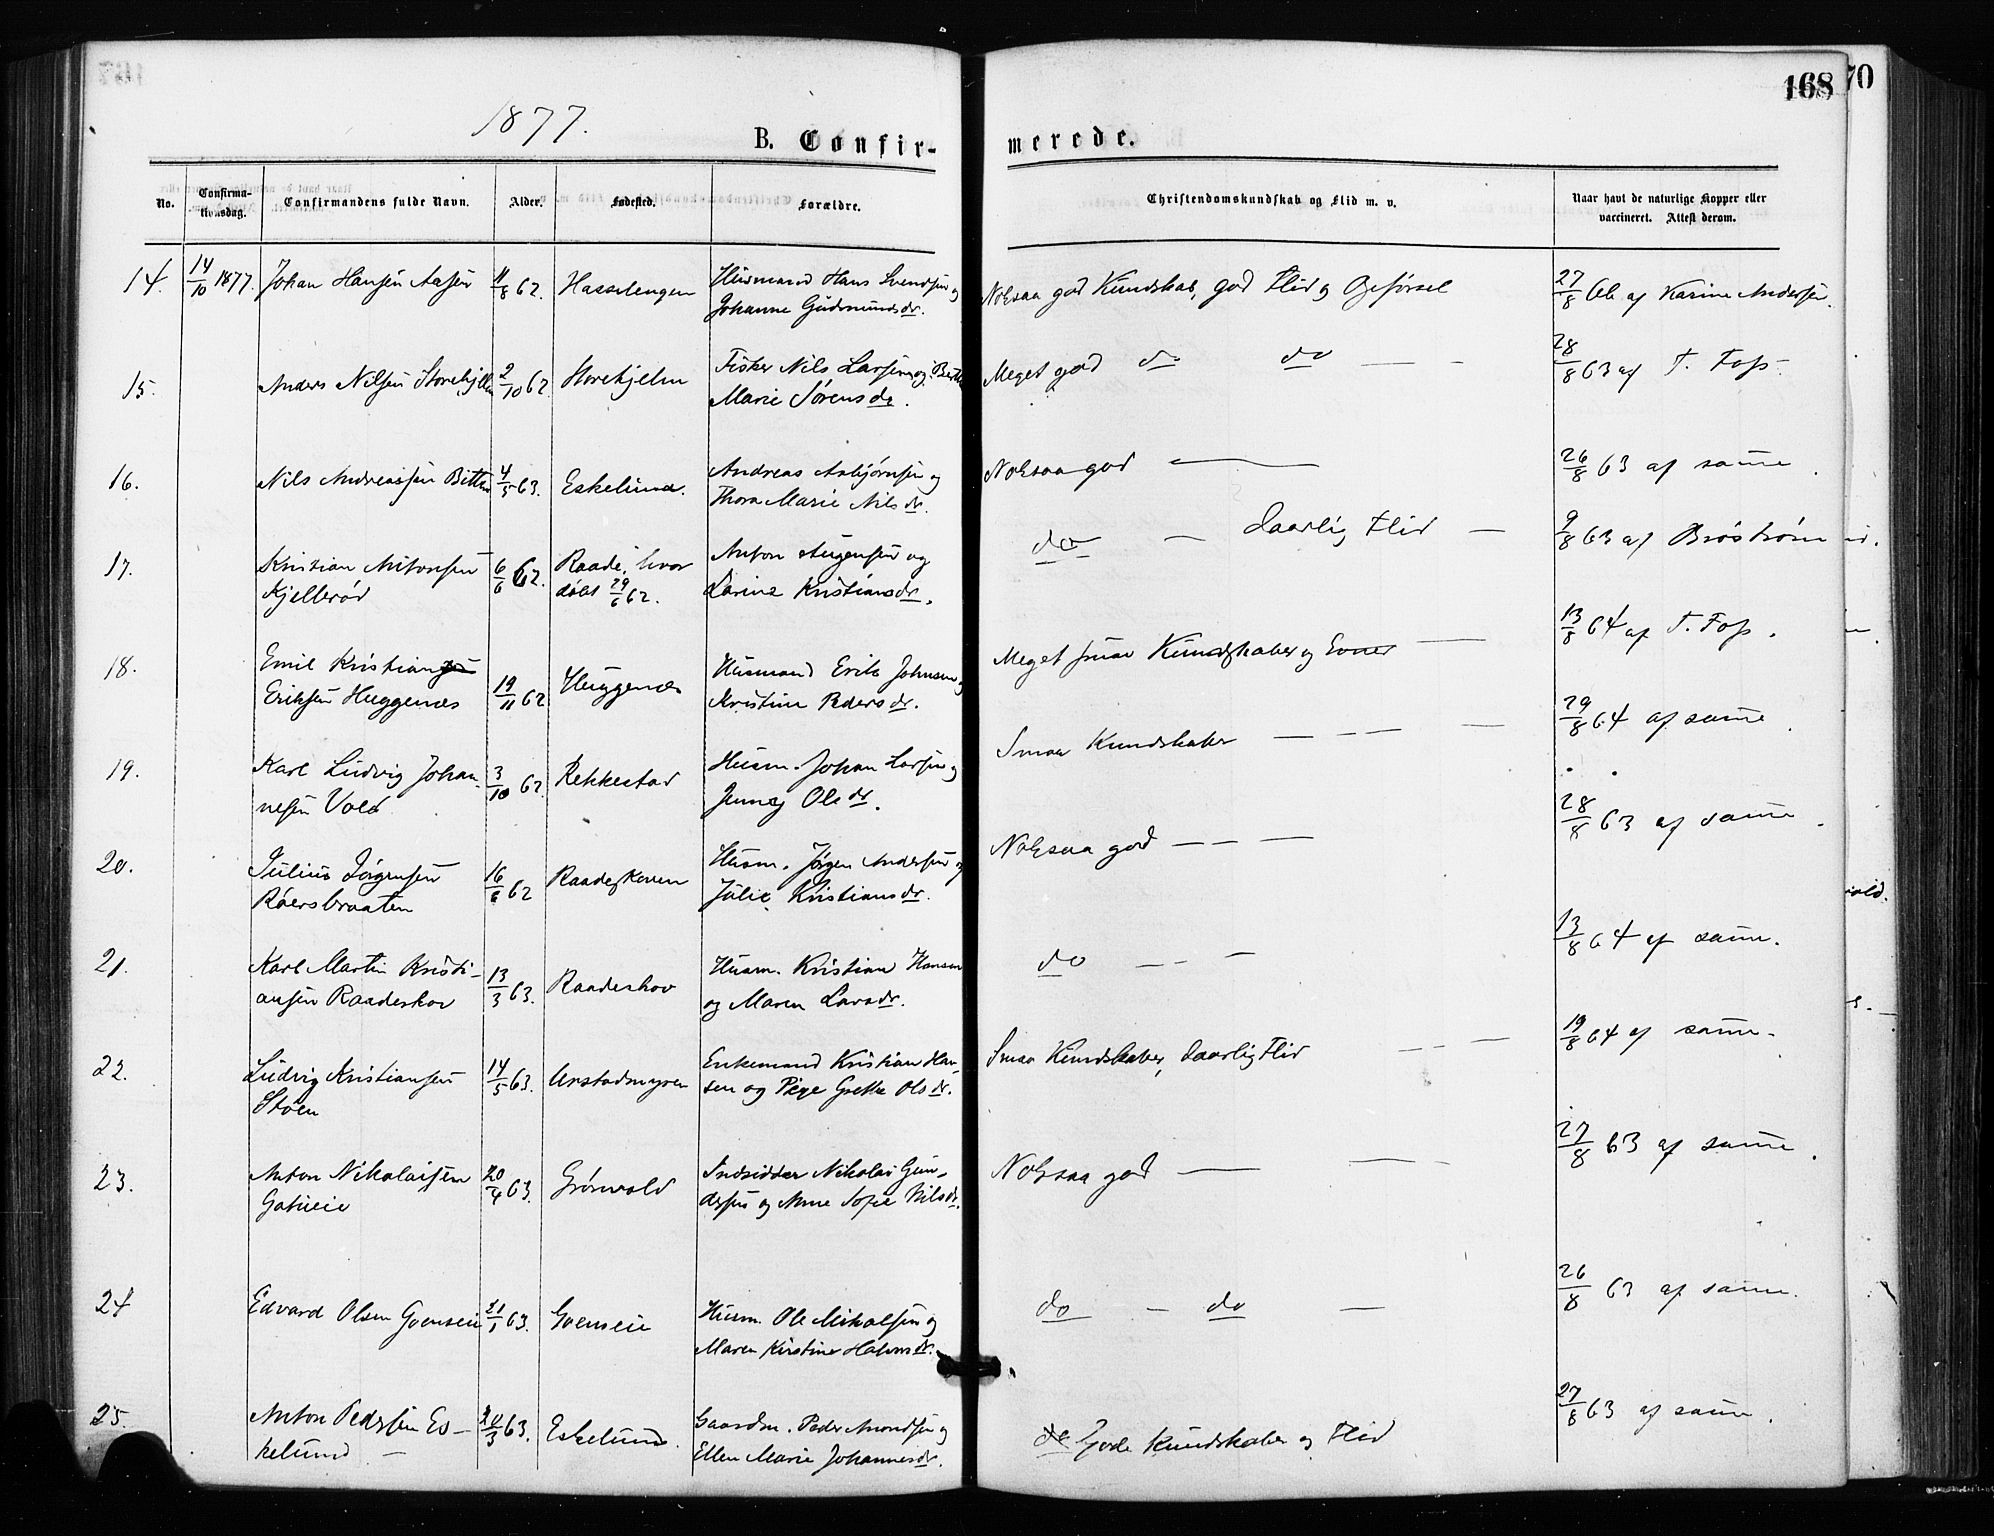 168
70
1877.
B. Confir-
merede.
No.
Confirma-
tionsdag.
Confirmandens fulde Navn.
Alder.
Fødested.
Forældre.
Christendomskundskab og Flid m. v.
Naar havt de naturlige Kopper eller
vaccineret. Attest derom.
14. 14/10 1877. Johan Hansen Aasen 11/8 62. Hasselengen Husmand Hans Svendsen og
Johanne Gudmundsdr.
Noksaa god Kundskab, god Flid og Opførsel
27/8 66 af Karine Andersen.
15. Anders Nilsen Storekjeln 2/10 62. Storekjeln Fisker Nils Larsen og Berthe
Marie Sørensdr.
Meget god do do — -
28/8 63 af T. Foss.
16. Nils Andreassen Bitten 4/5 63. Eskelund. Andreas Asbjørnsen og
Thora Marie Nilsdr.
Noksaa god —
26/8 63 af samme.
17. Kristian Antonsen 6/6 62. Raade, hvor Anton Augensen og
Kjellerød døbt 29/6 62. Larine Kristiansdr.
do — daarlig Flid —
9/8 63 af Brøstrøm
18. Emil Kristian
Eriksen Huggenæs 19/11 62 Huggenæs Husmand Erik Johnsen og
Kristine Pedersdr.
Meget smaa Kundskaber og Evner —
13/8 64 af T. Foss.
19. Karl Ludvig Johan- 3/10 62. Rekkestad Husm. Johan Larsen og
nesen Vold Jenny Olsdr.
Smaa Kundskaber — - — —
29/8 64 af samme.
20. Julius Jørgensen 16/6 62 Raadeskoven Husm. Jørgen Andersen og
Røersbraaten Julie Kristiansdr.
Noksaa god — — —
28/8 63 af samme.
21. Karl Martin Kristi- 13/3 63. Raadeskov Husm. Kristian Hansen
ansen Raadeskov og Maren Larsdr.
do — - —
13/8 64 af samme.
22. Ludvig Kristiansen 14/5 63. Unstadmyren Enkemand Kristian Han-
Støen sen og Pige Grethe Olsdr.
Smaa Kundskaber, daarlig Flid — - —
19/8 64 af samme.
23. Anton Nikolaisen 20/4 63. Grønvold Indsidder Nikolai Gun-
dersen og Anne Sofie Nilsdr.
Noksaa god — — -
27/8 63 af samme.
24 Edvard Olsen Goenseie 21/1 63. Goenseie Husm. Ole Mikalsen og
Maren Kirstine Halvorsdr.
do — do —
26/8 63 af samme.
25. Anton Pedersen Es- 24/3 63. Eskelund. Gaardm. Peder Amondsen og
kelund — Ellen Marie Johannesdr.
do Gode Kundskaber og Flid
27/8 63 af samme.